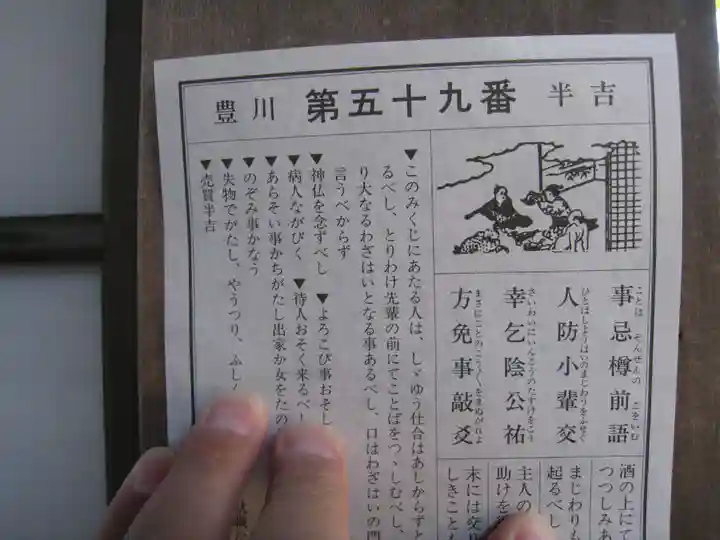 豊川 第五十九番 半吉
事忌樽前語
ことは ぞんぜんの ごをいむ
人防小輩交
ひとはしようはいのまじわりをふせぐ
幸乞陰公祐
さいわいにいんこうのたすけをこう
方免事敲爻
まさにことのこうこうをまぬがれよ
酒の上にて
つつしみあ
まじわりも
起るべし
主人の
助けを
末には交
しきこと
▼このみくじにあたる人は、しゞゆう仕合はあしからずと
るべし、とりわけ先輩の前にてことばをつゝしむべし、
り大なるわざはいとなる事あるべし、口はわざはいの門
言うべからず
▼神仏を念ずべし ▼よろこび事おそし
▼病人ながびく ▼待人おそく来るべし
▼あらそい事かちがたし出家か女をたの
▼のぞみ事かなう
▼失物でがたし、やうつり、ふしん
▼売買半吉